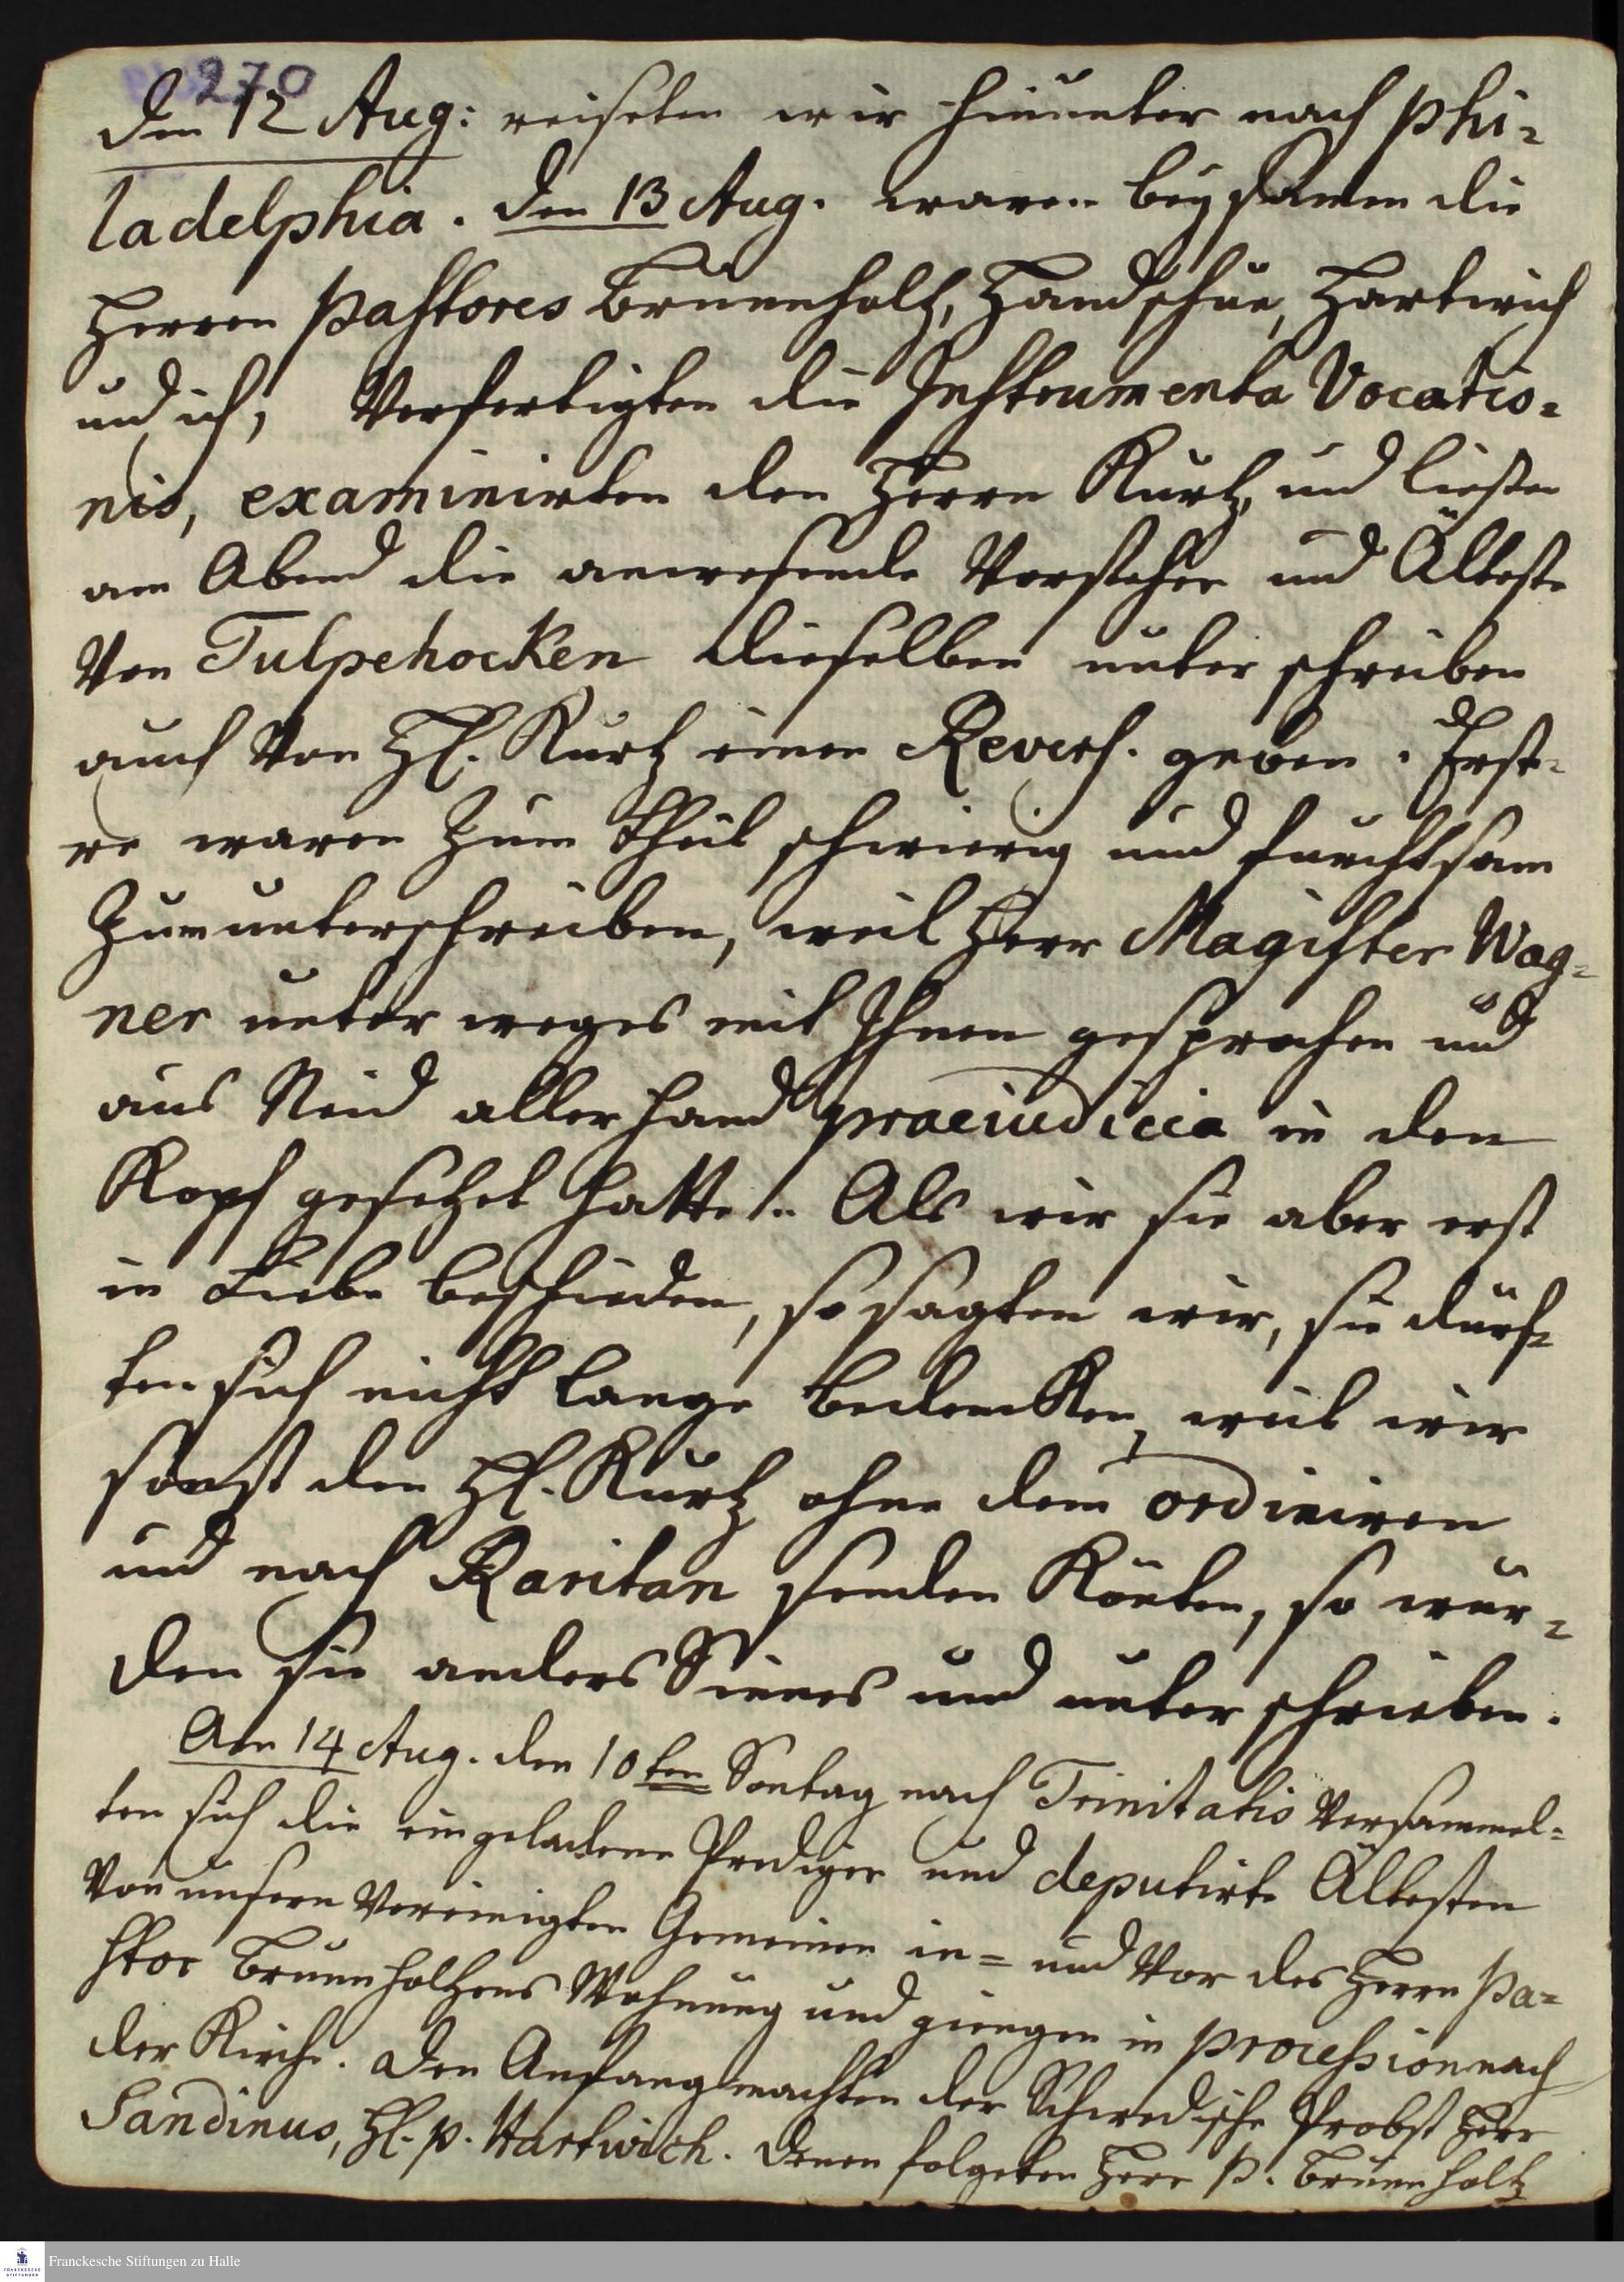 270
den 12 Aug: reiseten wir hinunter nach Phi-
ladelphia. den 13 Aug. waren beysamen die
Herren Pastores Brunnholtz, Handschue, Hartwich
und ich, Verfertigten die Instrumenta Vocatio-
nis, examinirten den Herrn Kurtz, und liessen
am Abend die anwesende Vorsteher und Älteste
Von Tulpehocken dieselben unter schreiben
auch Von HE. Kurtz einen Revers. geben. Erste-
re waren zum theil schwierig und furchtsam
zum unterschreiben, weil Herr Magister Wag-
ner unter weges mit Ihnen gesprochen und
aus Neid aller hand praeiudicia in den
Kopf gesetzet hatte. Als wir sie aber erst
in Liebe beschieden, so sagten wir, sie dürf-
ten sich nicht lange bedencken, weil wir
sonst den HE. Kurtz ohne dem ordiniren
und nach Raritan senden könten, so wur-
den sie anders Sinnes und unter schrieben.
Den 14 Aug. den 10ten Sontag nach Trinitatis Versammel-
ten sich die eingeladene Prediger und deputirte Ältesten
Von unsern Vereinigten Gemeinen in- und Vor des Herrn Pa-
stor Brunnholtzens Wohnung und giengen in procession nach
der Kirche. Den Anfang machten der Schwedische Probst Herr
Sandinus, HE. P. Hartwich. Denen folgeten Herr P. Brunnholtz
Franckesche Stiftungen zu Halle